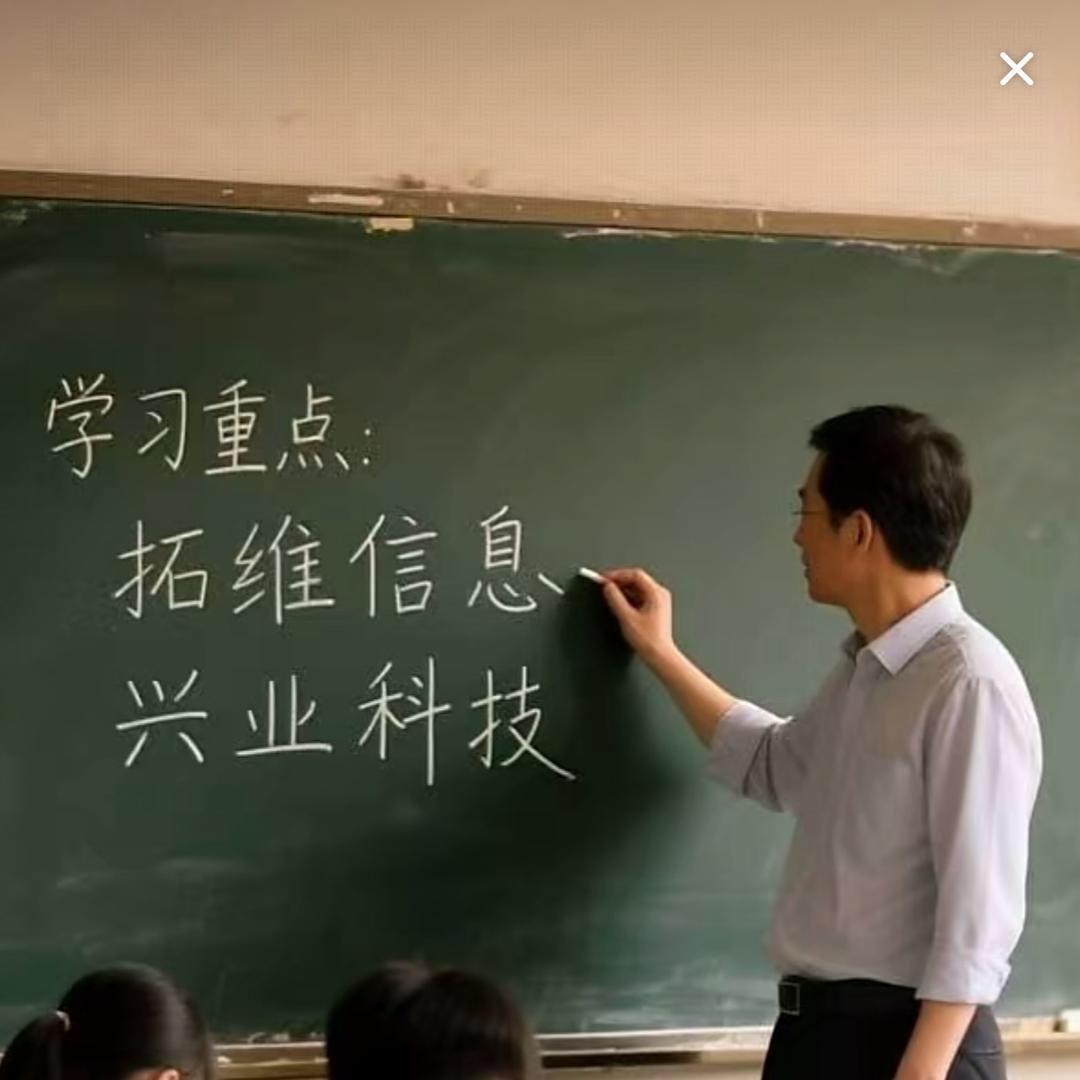 学习重点:
拓维信息
兴业科技